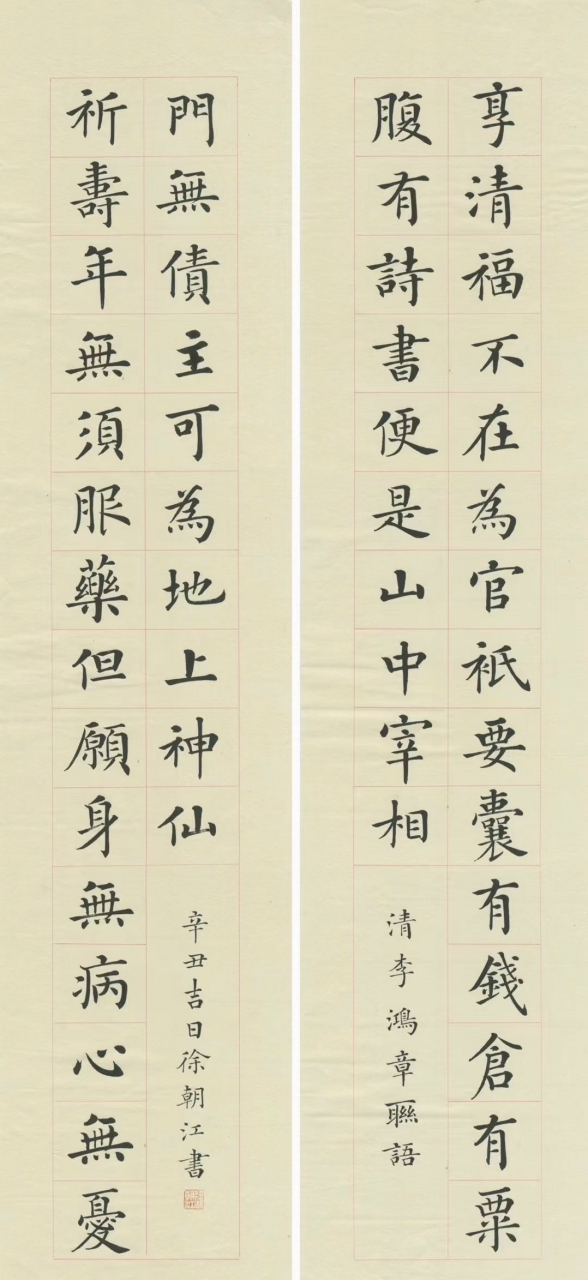 享清福不在為官祇要囊有錢倉有粟
腹有詩書便是山中宰相
清李鴻章聯語
祈壽年無須服藥但願身無病心無憂
門無債主可為地上神仙
辛丑吉日徐朝江書